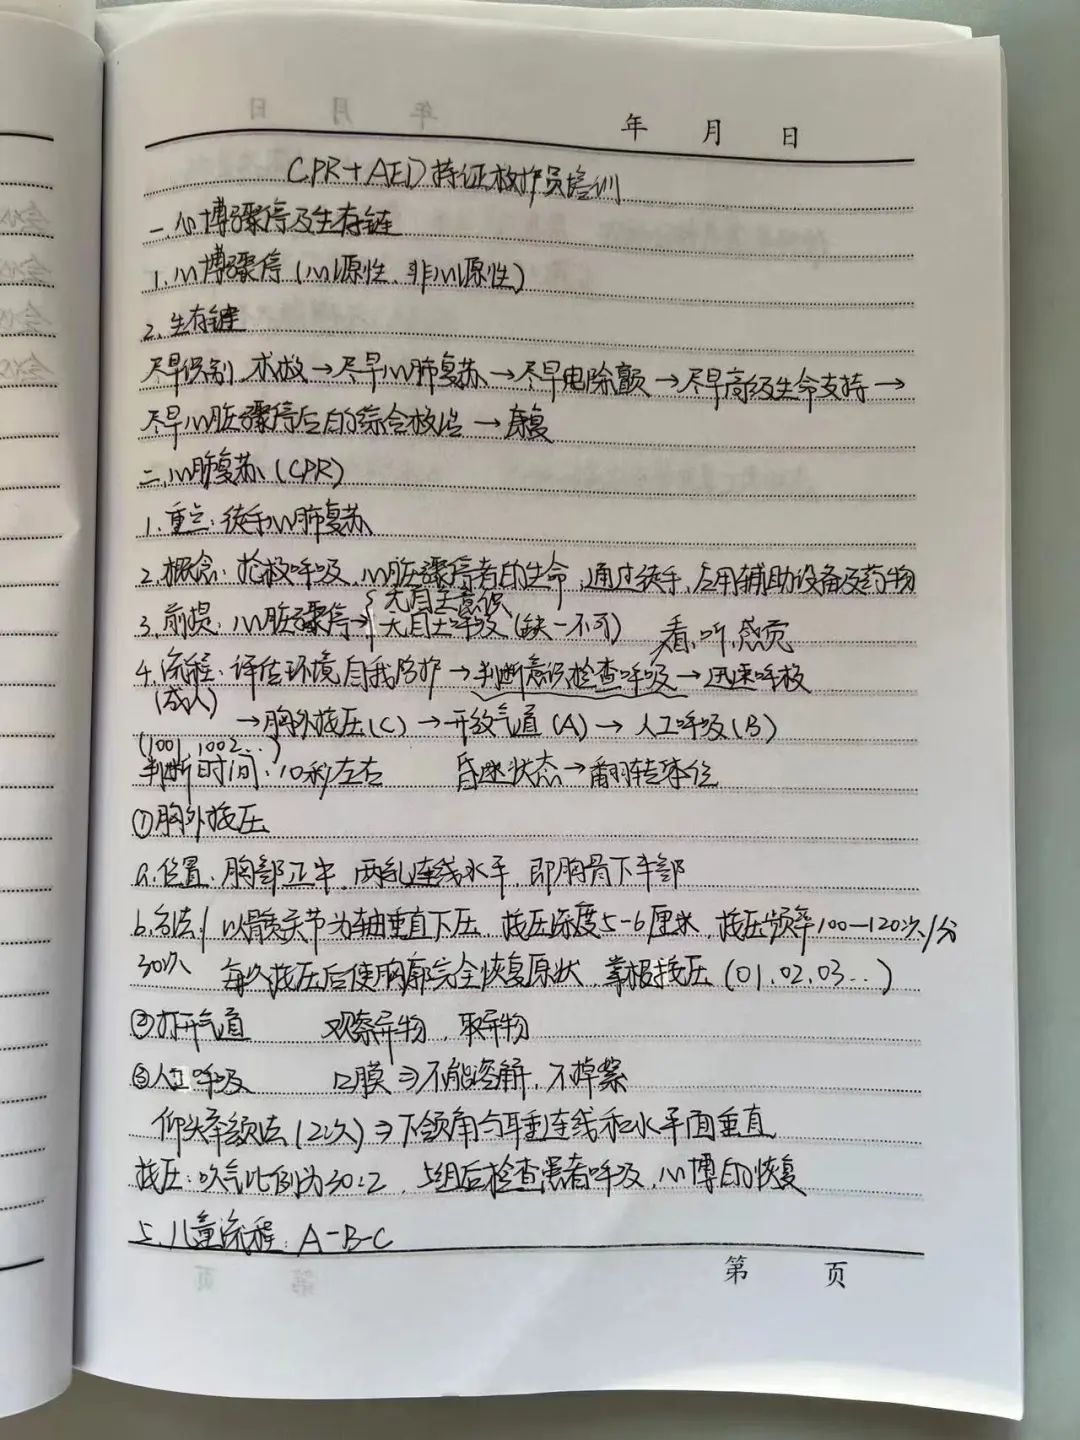 年 月 日
CPR+AED持证救护员培训
一、心搏骤停及生存链
1.心搏骤停(心源性、非心源性)
2.生存链
尽早识别、求救→尽早心肺复苏→尽早电除颤→尽早高级生命支持→
尽早心脏骤停后的综合救治→康复
二、心肺复苏(CPR)
1.重点:徒手心肺复苏
2.概念:抢救呼吸、心脏骤停者的生命,通过徒手、应用辅助设备及药物
3.前提:心脏骤停→{无自主意识 无自主呼吸(缺一不可) 看、听、感觉
4.流程:评估环境自我防护→判断意识检查呼吸→迅速呼救
(成人) →胸外按压(C)→开放气道(A)→人工呼吸(B)
(1001、1002…)
判断时间:10秒左右 昏迷状态→翻转体位
①胸外按压
a.位置:胸部正中,两乳连线水平,即胸骨下半部
b.方法/以髋关节为轴垂直下压,按压深度5-6厘米,按压频率100—120次/分
30次 每次按压后使胸廓完全恢复原状,掌根按压(01、02、03…)
②打开气道 观察异物,取异物
③人工呼吸 口膜⇒不能溶解,不掉絮
仰头举颏法(2次)⇒下颌角与耳垂连线和水平面垂直
按压:吹气比例为30:2,5组后检查患者呼吸、心搏的恢复
5.儿童流程:A-B-C
第 页